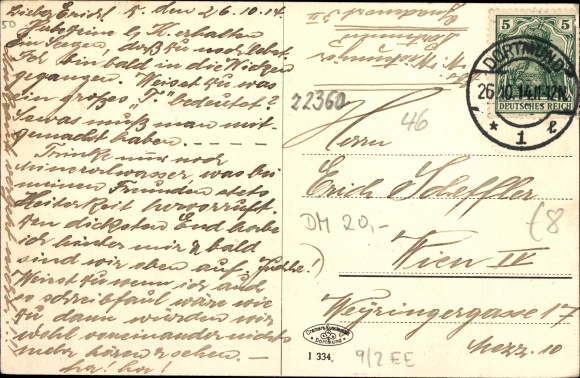 Lieber Erich! D. den 26.10.14.
erhalten
ein Segen, daß du noch lebst.
Ich bin bald in die Wicken
gegangen. Weisst du was
ein großes „T“ bedeutet?
Sowas muß man mit-
gemacht haben. - - - -
Trinke nur noch
Mineralwasser, was bei
meinen Freunden stets
Heiterkeit hervorruft.
Den dicksten End habe
ich hinter mir & bald
sind wir oben auf.
Weisst du wenn ich auch
so schreibfaul wäre wie
du dann würden wir
wohl voneinander nichts
mehr hören & sehen. -
ha! ha!
Dortmund
5 5
DEUTSCHES REICH
DORTMUND
26.10.14.11-12N.
* 1 e
22360
46
Herrn
Erich Scheffler
DM 20,-
(8
Wien IV
Weyringergasse 17
Mezz. 10
Cramers Kunstanstalt
Dortmund
I 334.
9/2 EE
50